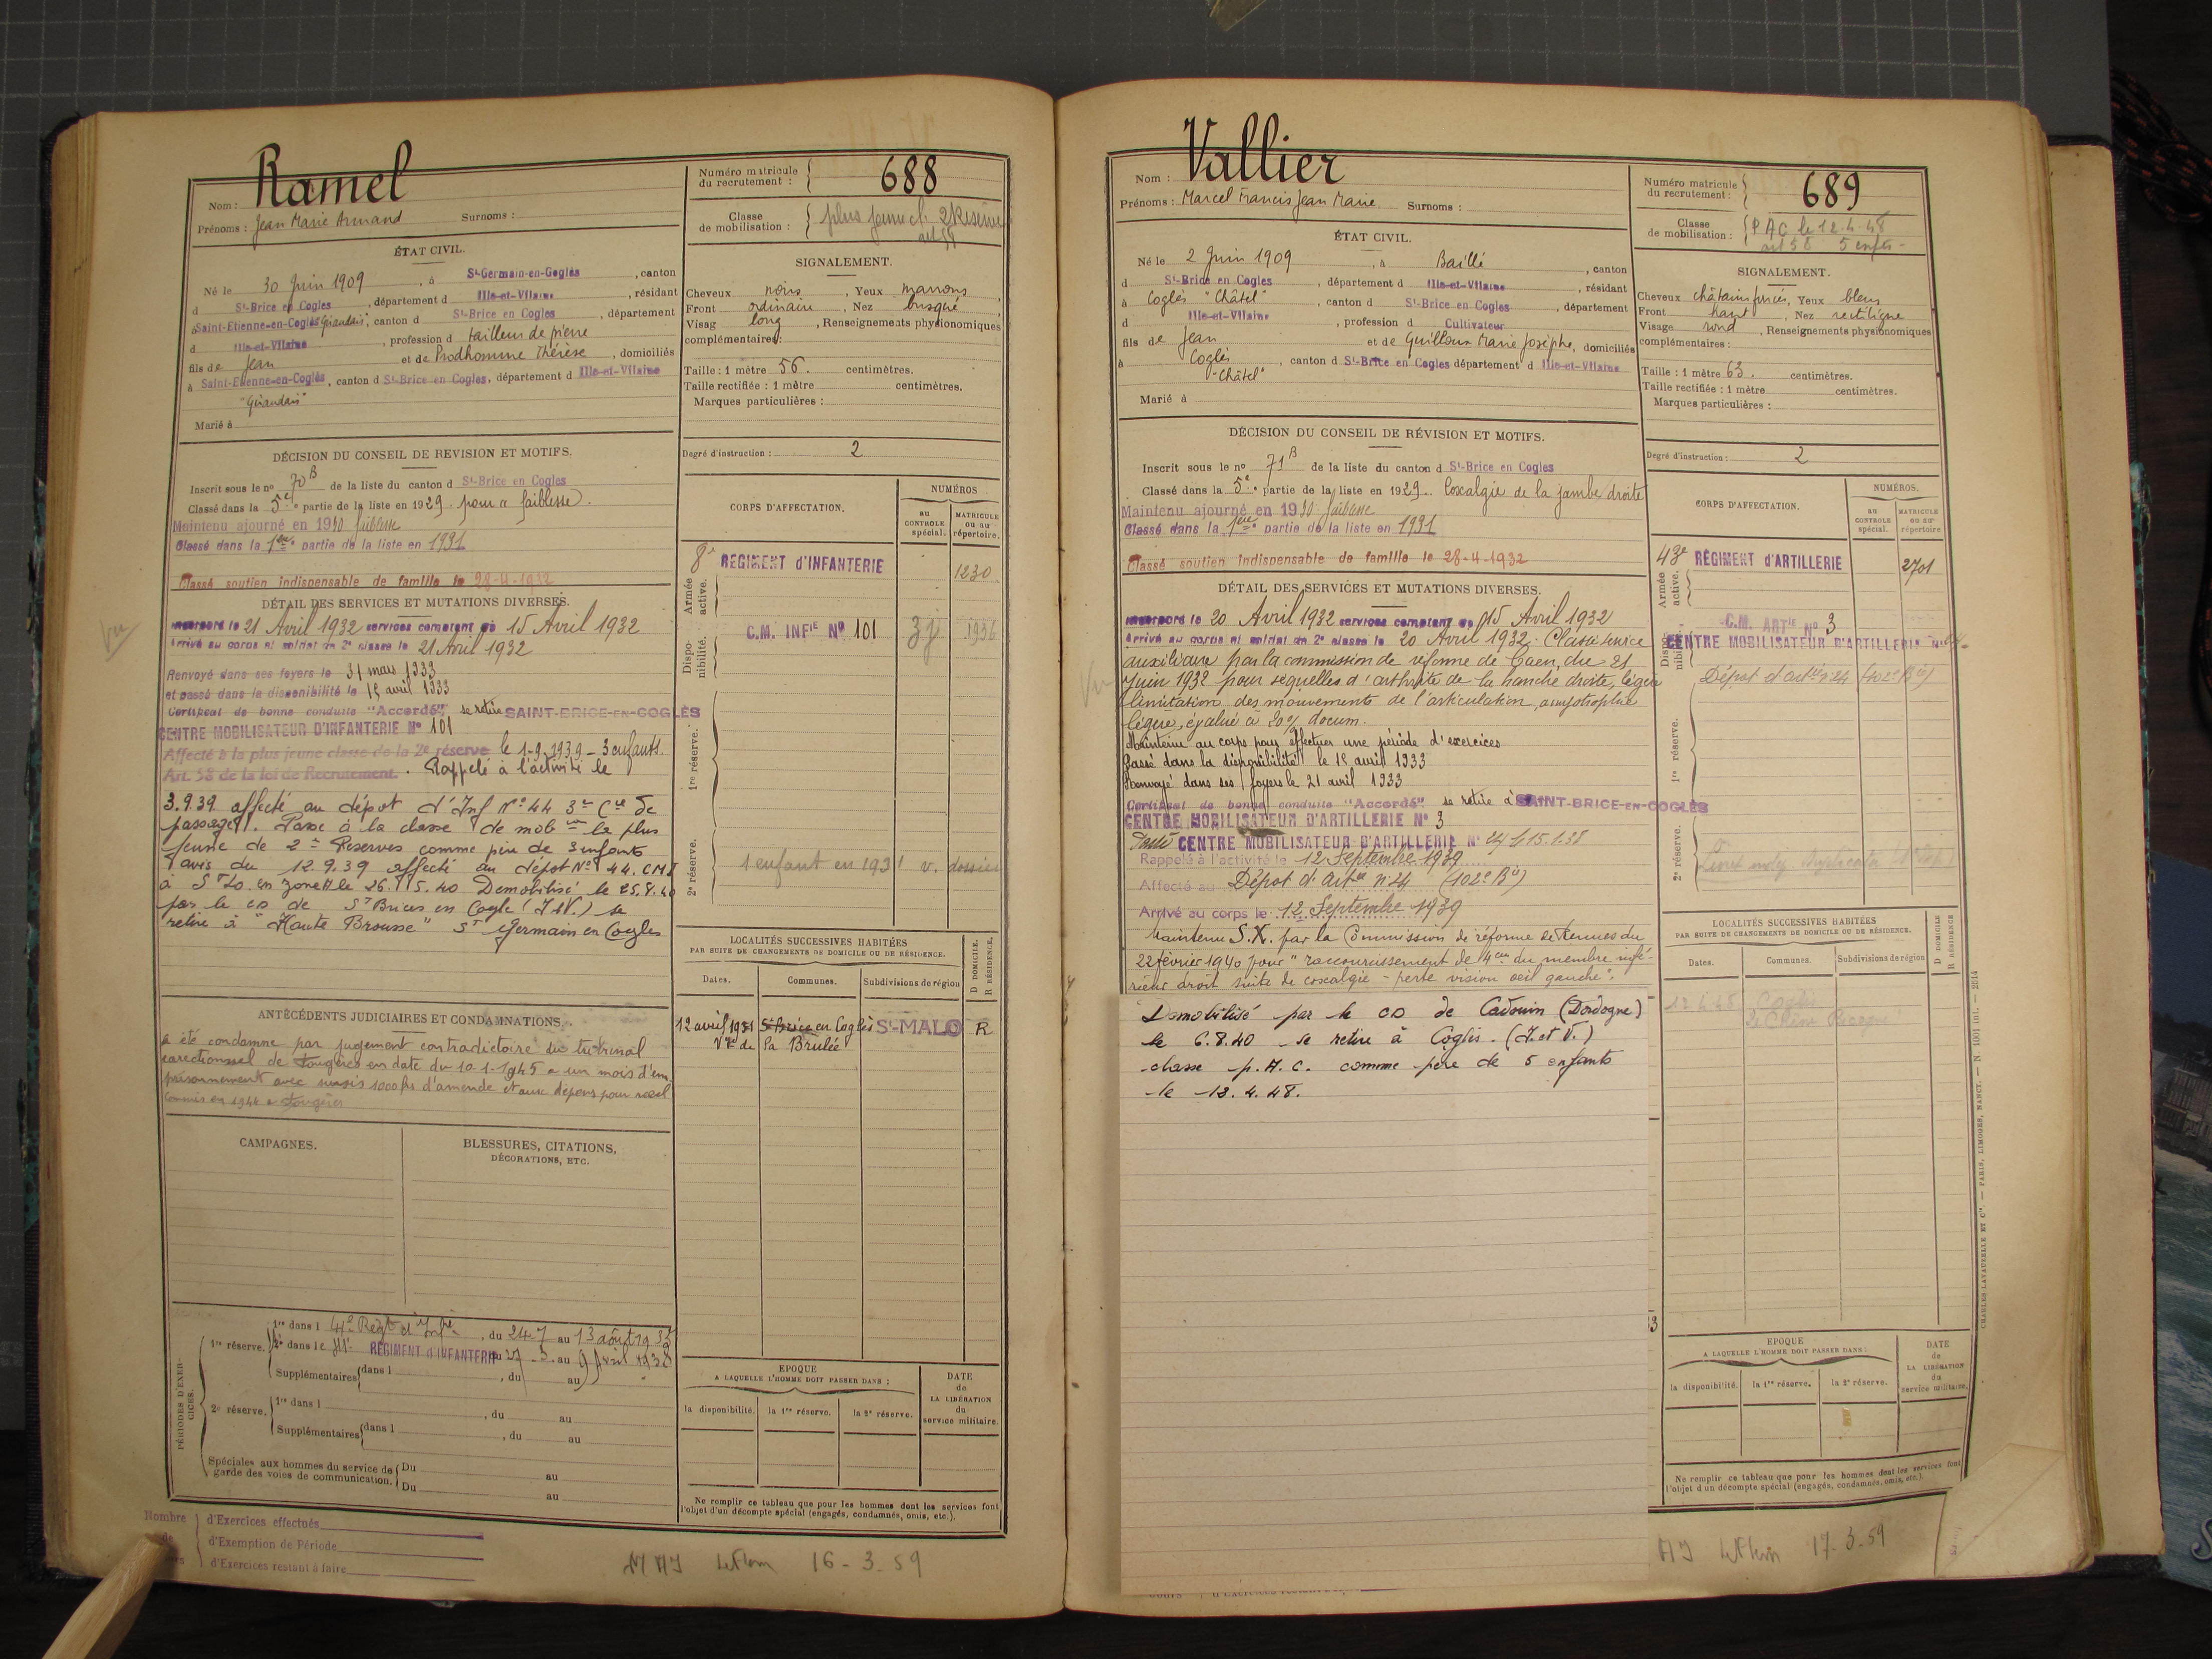 Nom : Ramel
Prénoms : Jean Marie Armand Surnoms :
ÉTAT CIVIL.
Né le 30 Juin 1909, à St-Germain-en-Coglès, canton
d St-Brice en Cogles, département d Ille-et-Vilaine, résidant
à Saint-Etienne-en-Coglès "Girandais", canton d St-Brice en Cogles, département
d Ille-et-Vilaine, profession d tailleur de pierre
fils de Jean et de Prodhomme Thérèse, domiciliés
à Saint-Etienne-en-Coglès, canton d St-Brice en Cogles, département d Ille-et-Vilaine
"Girandais"
Marié à
DÉCISION DU CONSEIL DE REVISION ET MOTIFS.
Inscrit sous le no 70 B de la liste du canton d St-Brice en Cogles
Classé dans la 5e partie de la liste en 1929 pour "faiblesse".
Maintenu ajourné en 1930 faiblesse
Classé dans la 1ère partie de la liste en 1931
Classé soutien indispensable de famille le 28-4-1932
DÉTAIL DES SERVICES ET MUTATIONS DIVERSES.
Incorporé le 21 Avril 1932 services comptant du 15 Avril 1932
Arrivé au corps et soldat de 2e classe le 21 Avril 1932
Renvoyé dans ses foyers le 31 mars 1933
et passé dans la disponibilité le 15 avril 1933
Certificat de bonne conduite "Accordé", se retire SAINT-BRICE-EN-COGLÈS
CENTRE MOBILISATEUR D'INFANTERIE No 101
Affecté à la plus jeune classe de la 2e réserve le 1-9-1939 - 3 enfants.
Art. 58 de la loi de Recrutement. Rappelé à l'activité le
3.9.39 affecté au dépôt d'Inf No 44 3e Cie de
passage. Passe à la classe de mob ion la plus
jeune de 2e Reserves comme père de 3 enfants
avis du 12.9.39 affecté au dépôt No 44. CMI
à St Lo. en zone A le 26.5.40 Demobilisé le 25.8.40
par le CD de St Brices en Cogle (I&V.) se
retire à "Haute Brousse" St Germain en Cogles
ANTÉCÉDENTS JUDICIAIRES ET CONDAMNATIONS.
a été condamné par jugement contradictoire du tribunal
correctionnel de Fougères en date du 10-1-1945 a un mois d'em-
prisonnement avec sursis 1000 frs d'amende et aux dépens pour recel
commis en 1944 a Fougères
CAMPAGNES.
BLESSURES, CITATIONS,
DÉCORATIONS, ETC.
PÉRIODES D'EXERCICES.
1re réserve. 1re dans l 41e Regt d'Infie, du 24-7 au 13 août 1935
2e dans le 41e REGIMENT d'INFANTERIE du 27-3 au 9 Avril 1938
Supplémentaires dans l , du au
2e réserve. 1re dans l , du au
Supplémentaires dans l , du au
Spéciales aux hommes du service de
garde des voies de communication. Du au
Du au
Nombre d'Exercices effectués
d'Exemption de Période
d'Exercices restant à faire
Numéro matricule
du recrutement : 688
Classe
de mobilisation : plus jeune cl. 2e Réserve
art 58
SIGNALEMENT.
Cheveux noirs, Yeux marrons
Front ordinaire, Nez busqué
Visage long, Renseignements physionomiques
complémentaires :
Taille : 1 mètre 56. centimètres.
Taille rectifiée : 1 mètre centimètres.
Marques particulières :
Degré d'instruction : 2
CORPS D'AFFECTATION.
NUMÉROS
au CONTROLE spécial.
MATRICULE ou au répertoire.
Armée active.
8e REGIMENT d'INFANTERIE 1230
Disponibilité.
C.M. INFIE No 101 1936
1re réserve.
2e réserve.
1 enfant en 1931 v. dossier
LOCALITÉS SUCCESSIVES HABITÉES
PAR SUITE DE CHANGEMENTS DE DOMICILE OU DE RÉSIDENCE.
D DOMICILE. R RÉSIDENCE.
Dates. Communes. Subdivisions de région
12 avril 1931 St Brice en Coglès St-MALO R
Vge de la Brulée
EPOQUE
A LAQUELLE L'HOMME DOIT PASSER DANS :
la disponibilité. la 1re réserve. la 2e réserve.
DATE
de
LA LIBÉRATION
du
service militaire.
Ne remplir ce tableau que pour les hommes dont les services font
l'objet d'un décompte spécial (engagés, condamnés, omis, etc.).
16-3-59
Nom : Vallier
Prénoms : Marcel Francis Jean Marie Surnoms :
ÉTAT CIVIL.
Né le 2 Juin 1909, à Baillé, canton
d St-Brice en Cogles, département d Ille-et-Vilaine, résidant
à Coglès "Châtel", canton d St-Brice en Cogles, département
d Ille-et-Vilaine, profession d Cultivateur
fils de Jean et de Guilloux Marie Josèphe, domiciliés
à Coglès, canton d St-Brice en Cogles département d Ille-et-Vilaine
"Châtel"
Marié à
DÉCISION DU CONSEIL DE RÉVISION ET MOTIFS.
Inscrit sous le no 71 B de la liste du canton d St-Brice en Cogles
Classé dans la 5e partie de la liste en 1929. Coxalgie de la jambe droite
Maintenu ajourné en 1930 faiblesse
Classé dans la 1ère partie de la liste en 1931
Classé soutien indispensable de famille le 28-4-1932
DÉTAIL DES SERVICES ET MUTATIONS DIVERSES.
Incorporé le 20 Avril 1932 services comptant du 15 Avril 1932
Arrivé au corps et soldat de 2e classe le 20 Avril 1932. Classé service
auxiliaire par la commission de réforme de Caen, du 21
Juin 1932 pour séquelles d'arthrite de la hanche droite, légère
limitation des mouvements de l'articulation, amyotrophie
légère, évalué à 20% docum.
Maintenu au corps pour effectuer une période d'exercices
Passé dans la disponibilité le 15 avril 1933
Renvoyé dans ses foyers le 21 avril 1933
Certificat de bonne conduite "Accordé" se retire à SAINT-BRICE-EN-COGLÈS
CENTRE MOBILISATEUR D'ARTILLERIE No 3
Passé CENTRE MOBILISATEUR D'ARTILLERIE No 24 15.1.38
Rappelé à l'activité le 12 Septembre 1939
Affecté au Dépôt d'Artie No 24 (102e Bie)
Arrivé au corps le 12 Septembre 1939
Maintenu S.X. par la Commission de réforme de Rennes du
22 février 1940 pour "raccourcissement de 4 cm du membre infé-
rieur droit suite de coxalgie - perte vision oeil gauche".
Démobilisé par le CD de Cadouin (Dordogne)
le 6.8.40 se retire à Coglès. (I. et V.)
classe p.A.C. comme père de 5 enfants
le 12.4.48.
Numéro matricule
du recrutement : 689
Classe
de mobilisation : P.A.C le 12-4-48
art 58 5 enfts-
SIGNALEMENT.
Cheveux châtain foncés, Yeux bleus
Front haut, Nez rectiligne
Visage rond, Renseignements physionomiques
complémentaires :
Taille : 1 mètre 63. centimètres.
Taille rectifiée : 1 mètre centimètres.
Marques particulières :
Degré d'instruction : 2
CORPS D'AFFECTATION.
NUMÉROS.
au CONTROLE spécial.
MATRICULE ou au répertoire.
Armée active.
43e RÉGIMENT d'ARTILLERIE 2701
Disponibilité.
C.M. ARTIE No 3
CENTRE MOBILISATEUR D'ARTILLERIE No 24
Dépôt d'artie 24 (102e Bie)
1re réserve.
2e réserve.
LOCALITÉS SUCCESSIVES HABITÉES
PAR SUITE DE CHANGEMENTS DE DOMICILE OU DE RÉSIDENCE.
D DOMICILE R RÉSIDENCE
Dates. Communes. Subdivisions de région
12.4.48 Coglès
EPOQUE
A LAQUELLE L'HOMME DOIT PASSER DANS :
la disponibilité. la 1re réserve. la 2e réserve.
DATE
de
LA LIBÉRATION
du
service militaire.
Ne remplir ce tableau que pour les hommes dont les services font
l'objet d'un décompte spécial (engagés, condamnés, omis, etc.).
17-3-59
CHARLES-LAVAUZELLE ET Cie. — PARIS, LIMOGES, NANCY. — N 1001 int. — 2514